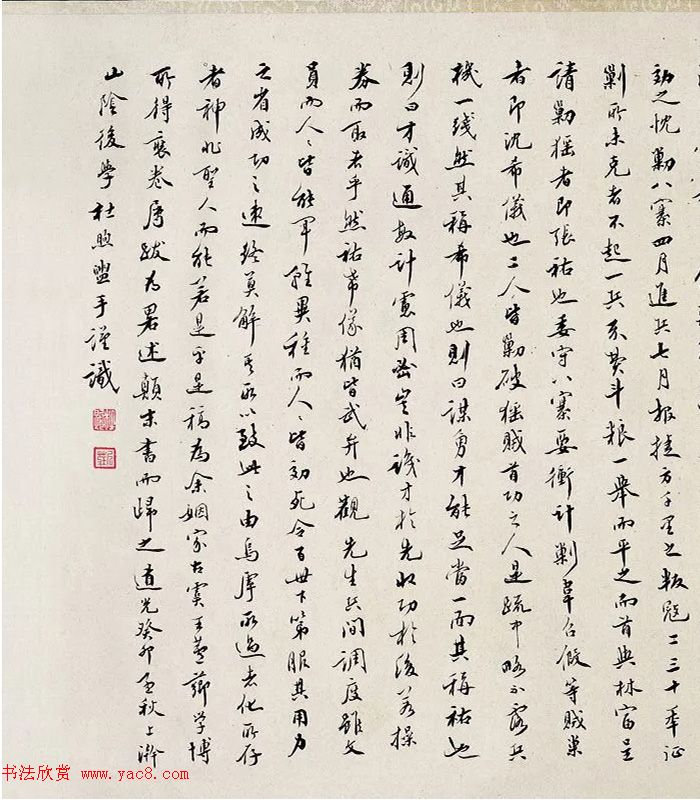 効之忱勦八寨四月進兵七月報捷方千里之叛寇二三十年証
剿所未克者不起一兵不費斗粮一舉而平之而首與林富呈
請勦猺者即張祐也委守八寨要衝計剿韋召假等賊巢
者即沈希儀也二人皆勦破猺賊首功之人是疏中略不露兵
機一綫然其稱希儀也則曰謀勇才能足當一面其稱祐也
則曰才識通敏計慮周密豈非識才於先收功於後若操
券而取者乎然祐希儀猶皆武弁也觀先生兵間調度雖文
員而人〻皆能軍雖異種而人〻皆効死令百世下第服其用力
之省成功之速終莫解其所以致此之由烏虖所過者化所存
者神非聖人而能若是乎是稿為余姻家古虞王藎薌學博
所得裝卷屬跋為畧述顛末書而歸之道光癸卯孟秋上澣
山陰後學杜煦盥手謹識
书法欣赏 www.yac8.com